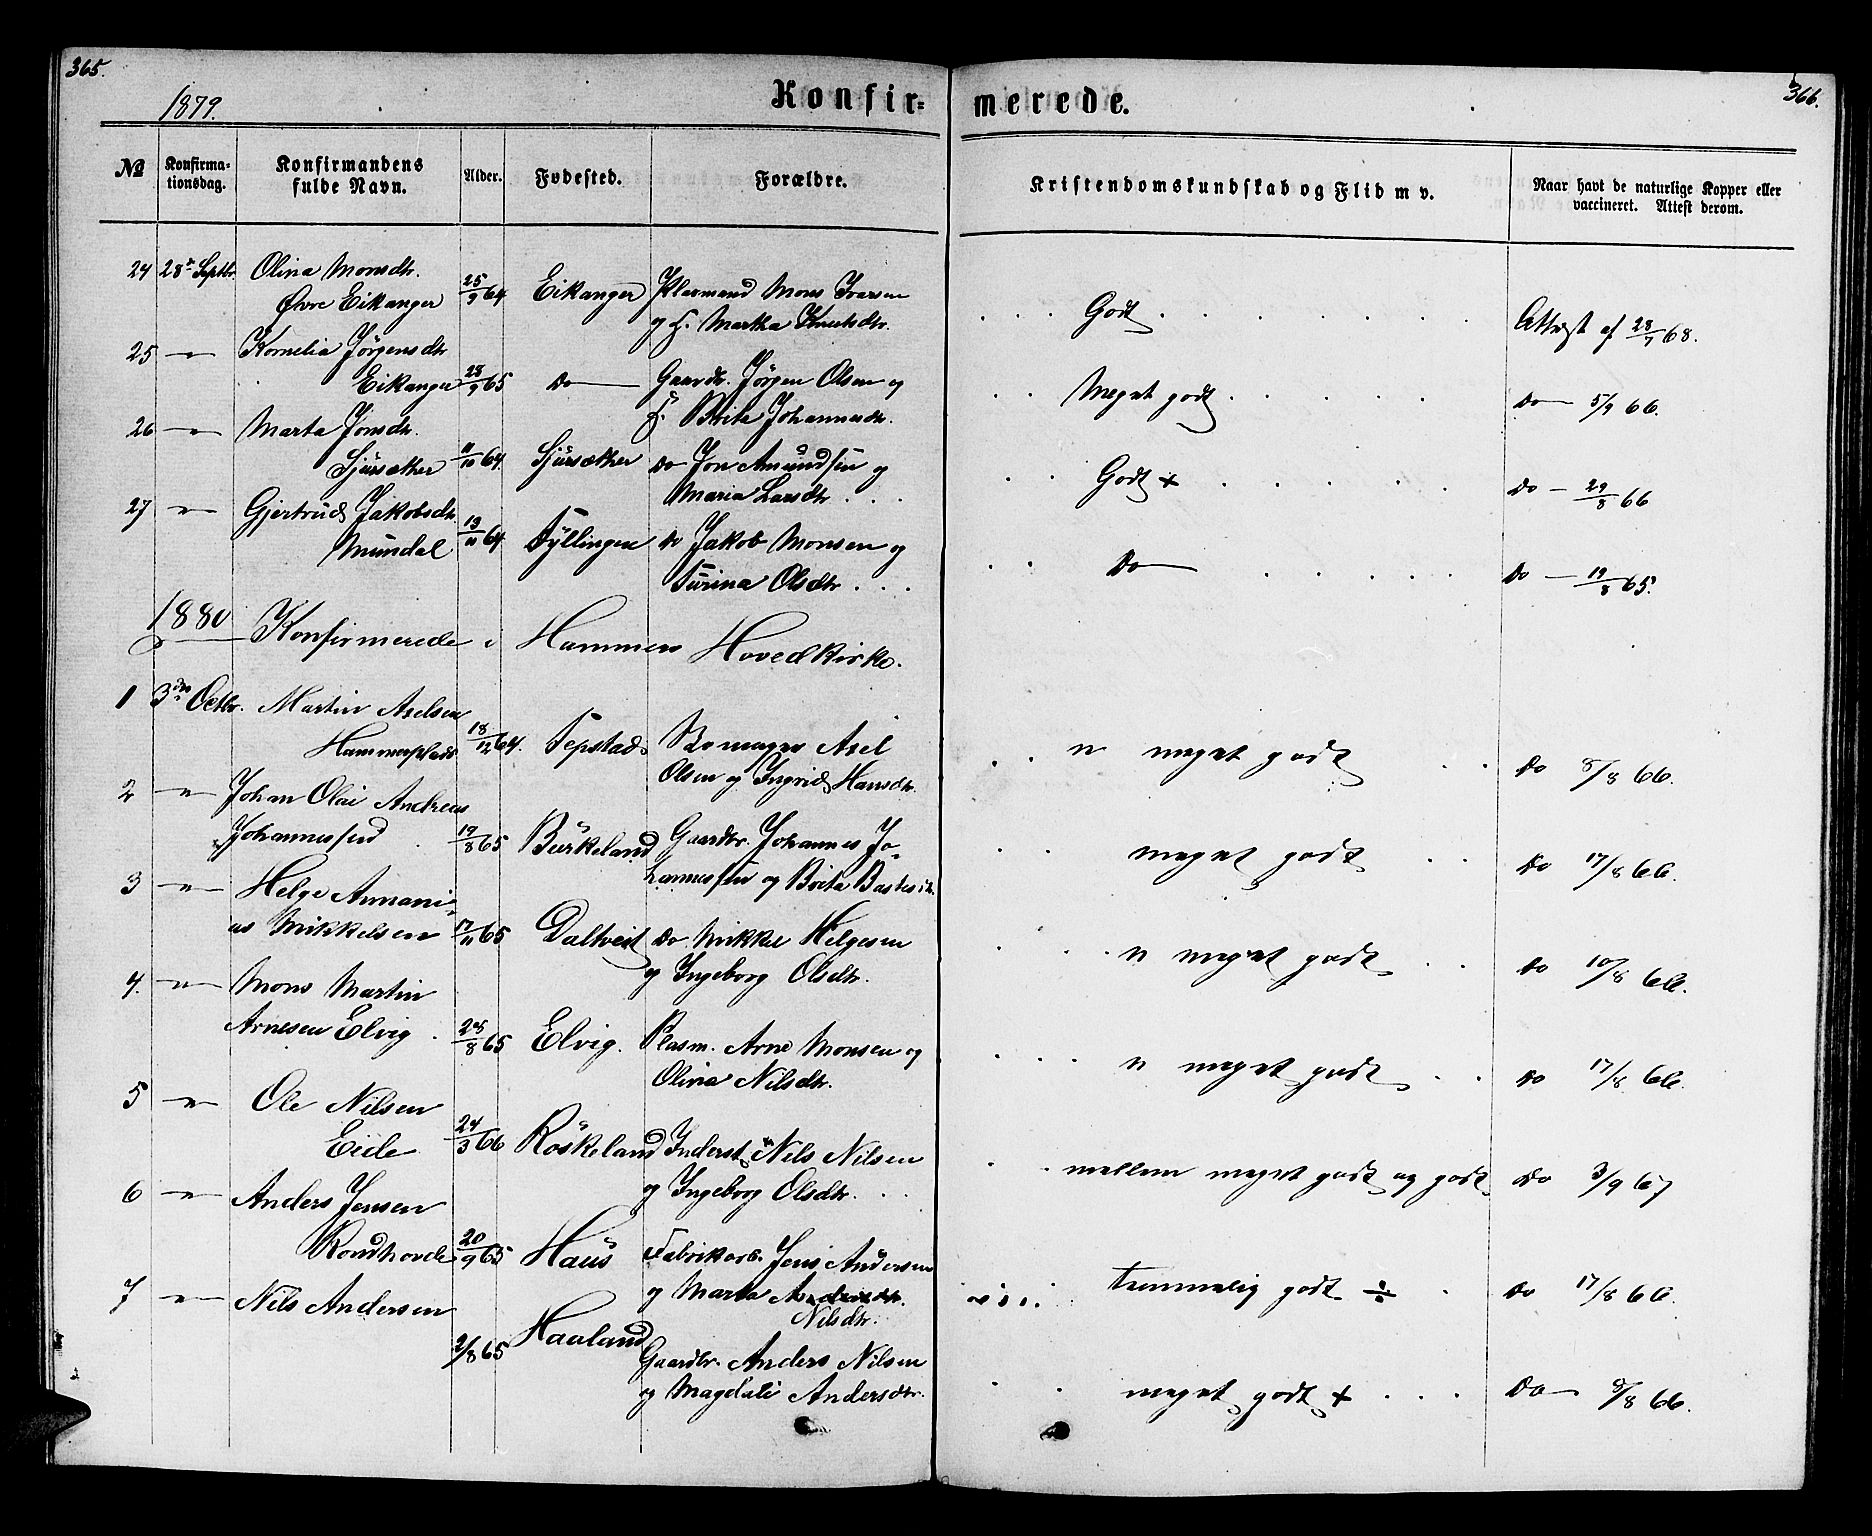 365.
1879.
Konfir=
merede.
366.
No
Konfirma=
tionsdag.
Konfirmandens
fulde Navn.
Alder.
Fødested.
Forældre.
Kristendomskundskab og Flid m v.
Naar havt de naturlige Kopper eller
vaccineret. Attest derom.
24 28de Septbr. Olina Monsdtr. 25/9 64 Eikanger Pladsmand Mons Iversen
Øvre Eikanger og H. Martha Knutsdtr.
Godt Attest af 28/7 68.
25 — " — Kornelia Jørgensdtr
Eikanger 28/9 65 do — Gaardbr. Jørgen Olsen og
H. Brita Johannesdtr.
Meget godt do — 5/9 66.
26 — " — Marta Jonsdtr.
Sjursæther 11/10 64 Sjursæther do Jon Amundsen og
Maria Larsdtr
Godt + do — 29/8 66
27 — " — Gjertrud Jakobsdtr
Mundal 13/11 64 Fyllingen do Jakob Monsen og
Turina Olsdtr
Do — do — 19/8 65.
1880 Konfirmerede i Hammers Hovedkirke.
1 3die Octbr. Martin Axelsen
Hammersplads 18/12 64. Tepstad Axel
Olsen og Ingrid Hansdtr.
n meget godt do 8/8 66.
2 — " — Johan Olai Andreas
Johannessen 19/8 65 Burkeland Gaardbr. Johannes Jo-
hannessen og Brita
meget godt do 17/8 66.
3 — " — Helge Annani-
as Mikkelsen 17/11 65 Daltveit do Mikkel Helgesen
og Ingeborg Olsdtr.
n meget godt do 10/8 66.
4. — " — Mons Martin
Arnesen Elvig. 25/8 65 Elvig. Plasm. Arne Monsen og
Olina Nilsdtr.
n meget godt do 17/8 66.
5 — " — Ole Nilsen
Eide 24/3 66 Röskeland Inderst Nils Nilsen
og Ingeborg Olsdtr.
mellem meget godt og godt do 3/9 67
6 — " — Anders Jensen
Rondhovde 20/9 65 Haus Fabrikarb. Jens Andersen
og Marta
Nilsdtr.
temmelig godt ÷ do 17/8 66.
7 — " — Nils Andersen
2/8 65 Haaland Gaardbr. Anders Nilsen
og Magdali Andersdtr.
meget godt + do — 8/8 66.